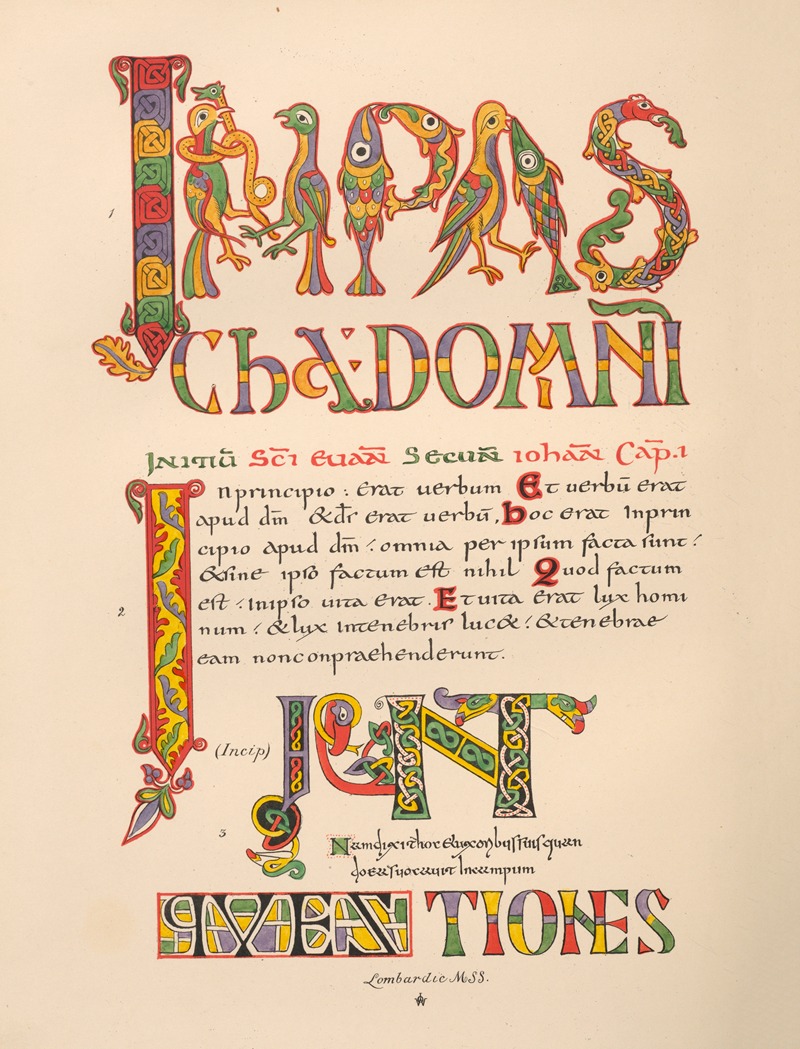 1
INPAS
ChA:DOMN̄I
INITIŪ SC̄I EUAN̄ SECUN̄ IOHAN̄ CAP̄.I
2
Inprincipio : erat uerbum Et uerbū erat
apud dm̄ &ds̄ erat uerbū, hoc erat Inprin
cipio apud dm̄ : omnia per ipsum facta sunt :
&sine ipso factum est nihil Quod factum
est : Inipso uita erat. Et uita erat lux homi
num : &lux intenebris luc& : &tenebrae
eam nonconpraehenderunt.
(Incip)
3
QUAES
TIONES
Lombardic MSS.